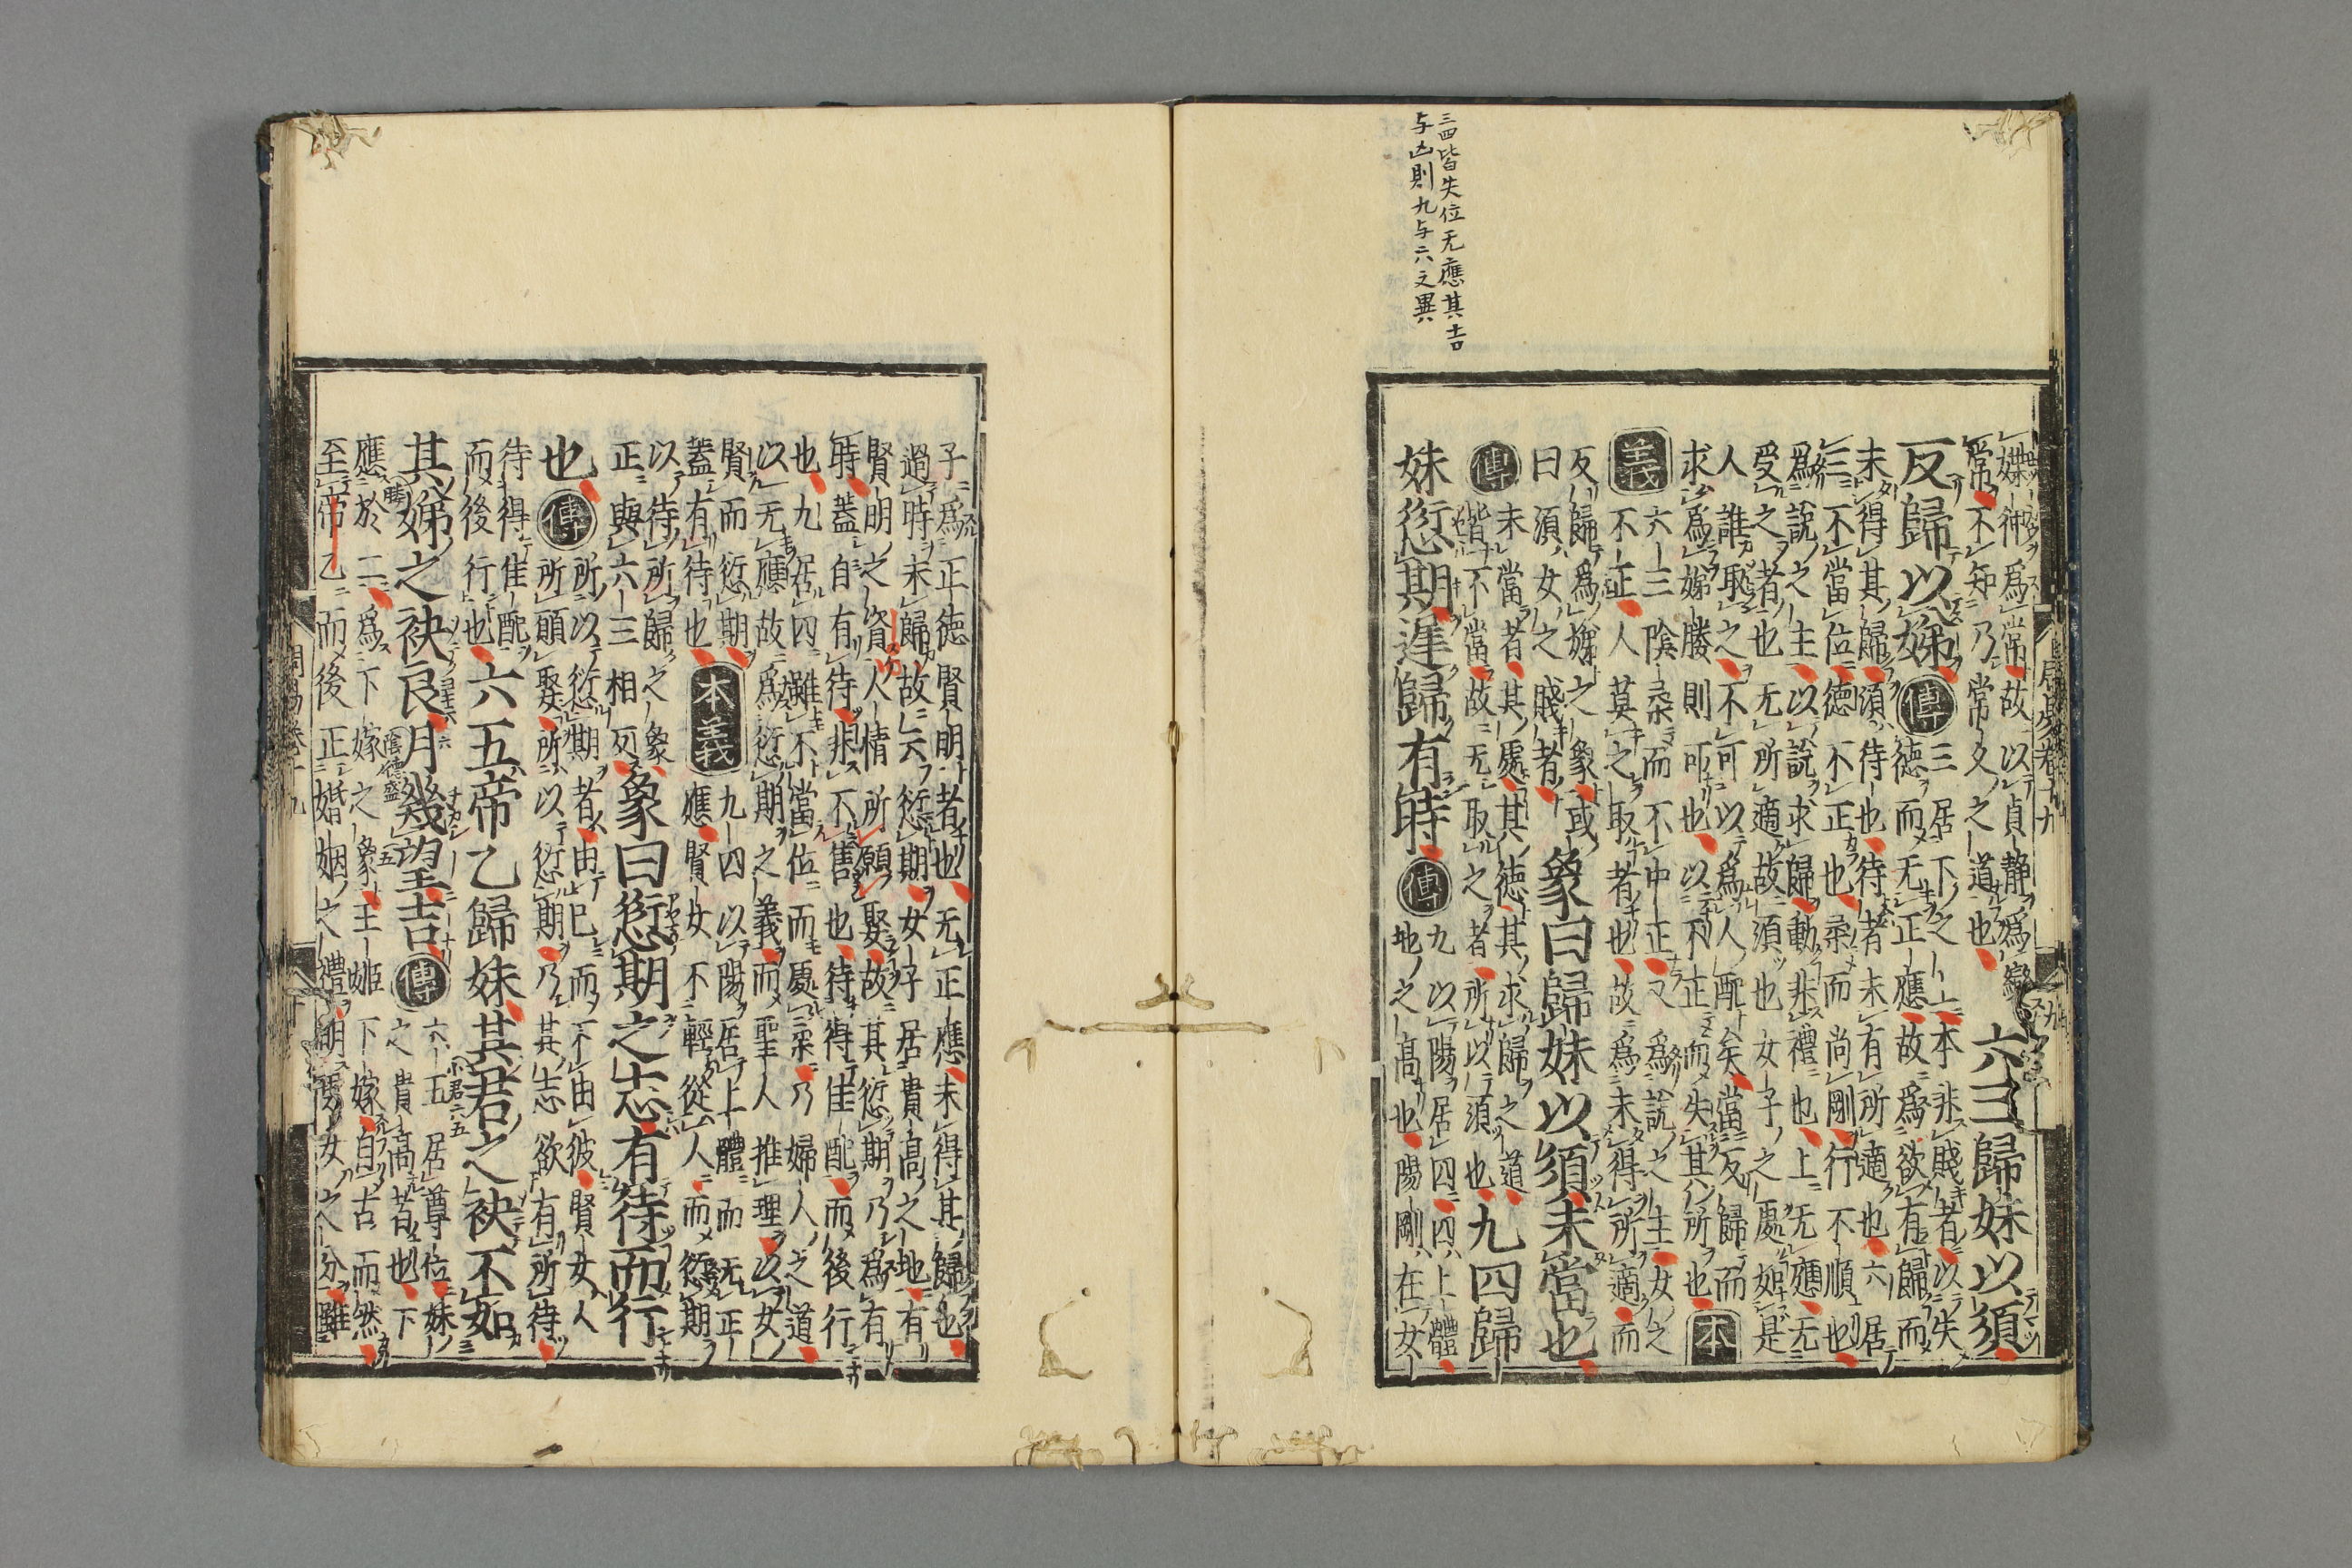 三四皆失位无應其吉
与凶則九与六之異
媟狎爲常故以貞靜爲變
常不知乃常久之道也
六三歸妹以須
反歸以娣
傳
三居下之上本非賤者以失
德而无正應故爲欲有歸而
未得其歸須待也待者未有所適也六居
三不當位德不正也柔而尚剛行不順也
爲說之主以說求歸動非禮也上无應无
受之者也无所適故須也女子之處如是
人誰取之不可以爲人配矣當反歸而
求爲嫁勝則可也以不正而失其所也
本
義
六三陰柔而不中正又爲說之主女之
不正人莫之取者也故爲未得所適而
反歸爲娣之象或
曰須女之賤者
象曰歸妹以須未當也
傳
未當者其處其德其求歸之道
皆不當故无取之者所以須也
九四歸
妹愆期遲歸有時
傳
九以陽居四四上體
地之高也陽剛在女
子爲正德賢明者也无正應未得其歸也
過時未歸故云愆期女子居貴高之地有
賢明之資人情所願娶故其愆期乃爲有
時蓋自有待非不售也待得佳配而後行
也九居四雖不當位而處柔乃婦人之道
以无應故爲愆期之義而聖人推理以女
賢而愆期
蓋有待也
本義
九四以陽居上體而无正
應賢女不輕從人而愆期
以待所歸之象
正與六三相反
象曰愆期之志有待而行
也
傳
所以愆期者由已而不由彼賢女人
所願娶所以愆期乃其志欲有所待
待得佳配
而後行也
六五帝乙歸妹其君之袂不如
其娣之袂良月幾望吉
傳
六五居尊位妹
之貴高者也下
應於二爲下嫁之象王姬下嫁自古而然
至帝乙而後正婚姻之禮明男女之分雖